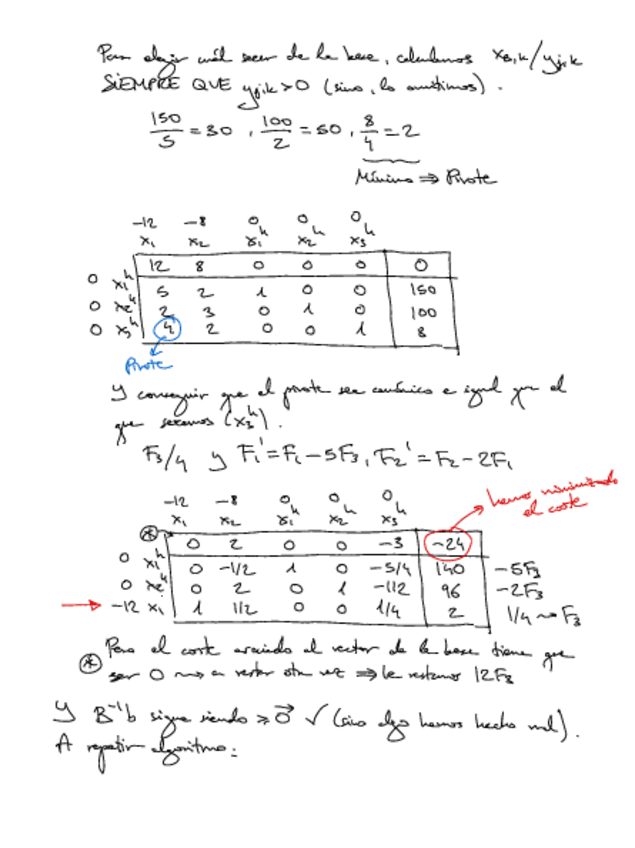 Para elegir cuál sacar de la base, calculamos x_B,k/y_j,k
SIEMPRE QUE y_j,k>0 (sino, lo omitimos).
150/5=30, 100/2=50, 8/4=2
Mínimo ⇒ Pivote
-12 -8 0 0 0
x₁ x₂ x₁ʰ x₂ʰ x₃ʰ
12 8 0 0 0 0
0 x₁ʰ 5 2 1 0 0 150
0 x₂ʰ 2 3 0 1 0 100
0 x₃ʰ 4 2 0 0 1 8
Pivote
Y conseguir que el pivote sea canónico e igual que el
que sacamos (x₃ʰ).
F₃/4 y F₁'=F₁-5F₃, F₂'=F₂-2F₁
hemos minimizado
el coste
-12 -8 0 0 0
x₁ x₂ x₁ʰ x₂ʰ x₃ʰ
⊛ 0 2 0 0 -3 -24
0 x₁ʰ 0 -1/2 1 0 -5/4 140 -5F₃
0 x₂ʰ 0 2 0 1 -1/2 96 -2F₃
→ -12 x₁ 1 1/2 0 0 1/4 2 1/4 ⇝ F₃
⊛ Pero el coste asociado al vector de la base tiene que
ser 0 ⇝ a restar otra vez ⇒ le restamos 12F₃
Y B⁻¹b sigue siendo ≥ 0⃗ ✓ (sino algo hemos hecho mal).
A repetir algoritmo: